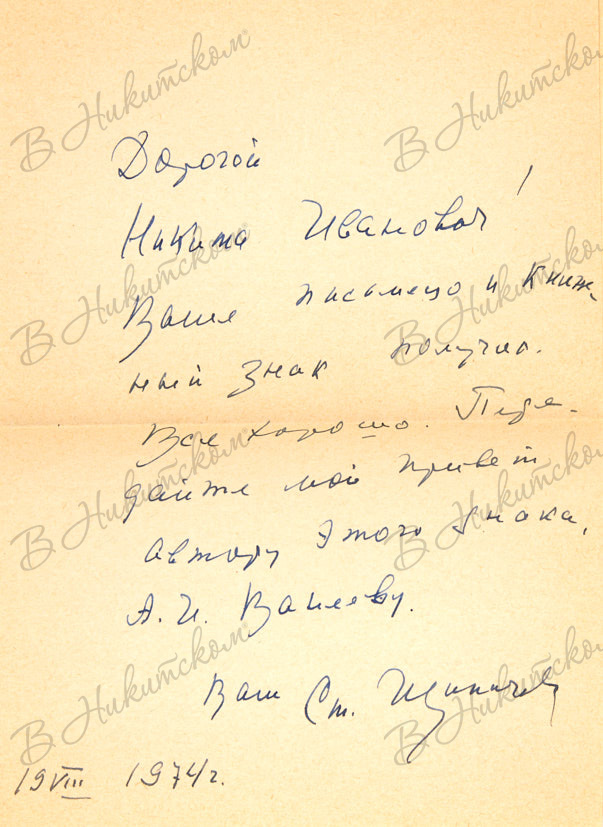 Дорогой
Никита Иванович!
Ваше письмецо и книж-
ный знак получил.
Все хорошо. Пере-
дайте мой привет
автору этого знака,
А. И.
Ваш Ст. Щипачев
19 VIII 1974 г.
В Никитском
В Никитском
В Никитском
В Никитском
В Никитском
В Никитском
В Никитском
В Никитском